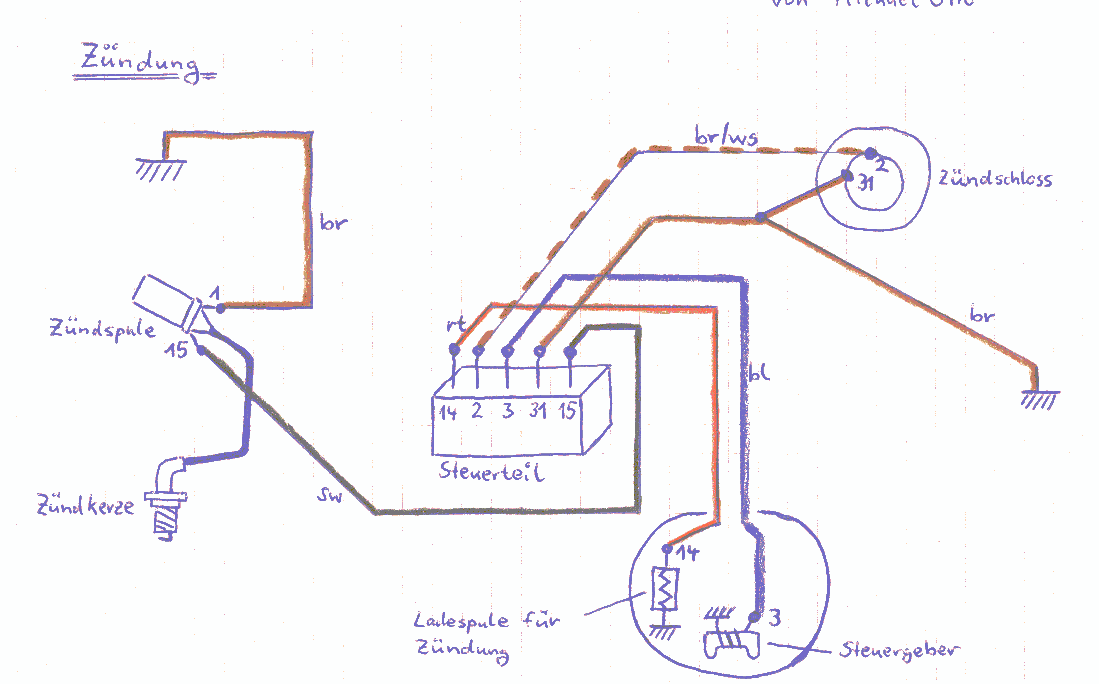 von Michael Otto
Zündung
br/ws
2
31
Zündschloss
br
1
Zündspule
15
rt
br
bl
14 2 3 31 15
Steuerteil
sw
Zündkerze
14
Ladespule für
Zündung
3
Steuergeber